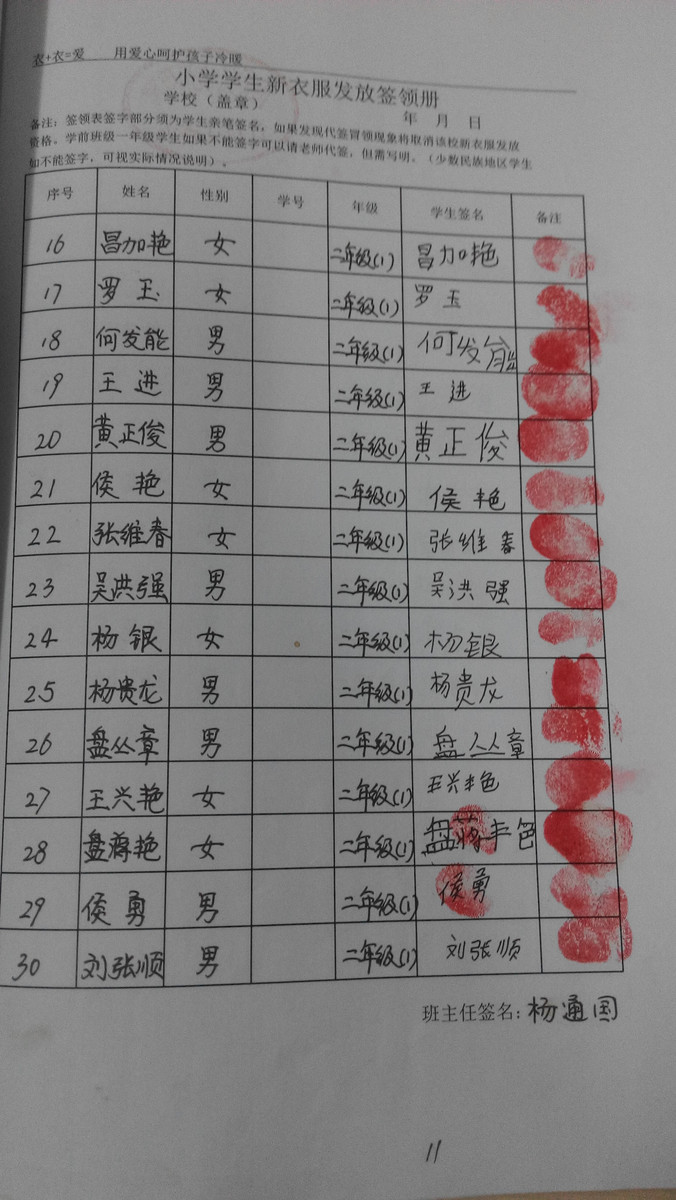 衣+衣=爱 用爱心呵护孩子冷暖
小学学生新衣服发放签领册
学校（盖章） 年 月 日
备注：签领表签字部分须为学生亲笔签名，如果发现代签冒领现象将取消该校新衣服发放
资格。学前班级一年级学生如果不能签字可以请老师代签，但需写明。（少数民族地区学生
如不能签字，可视实际情况说明）。
序号 姓名 性别 学号 年级 学生签名 备注
16 昌加艳 女 二年级(1) 昌加艳
17 罗玉 女 二年级(1) 罗玉
18 何发能 男 二年级(1) 何发能
19 王进 男 二年级(1) 王进
20 黄正俊 男 二年级(1) 黄正俊
21 侯艳 女 二年级(1) 侯艳
22 张维春 女 二年级(1) 张维春
23 吴洪强 男 二年级(1) 吴洪强
24 杨银 女 二年级(1) 杨银
25 杨贵龙 男 二年级(1) 杨贵龙
26 盘丛章 男 二年级(1) 盘丛章
27 王兴艳 女 二年级(1) 王兴艳
28 女 二年级(1)
29 侯勇 男 二年级(1) 侯勇
30 刘张顺 男 二年级(1) 刘张顺
班主任签名：杨通国
11